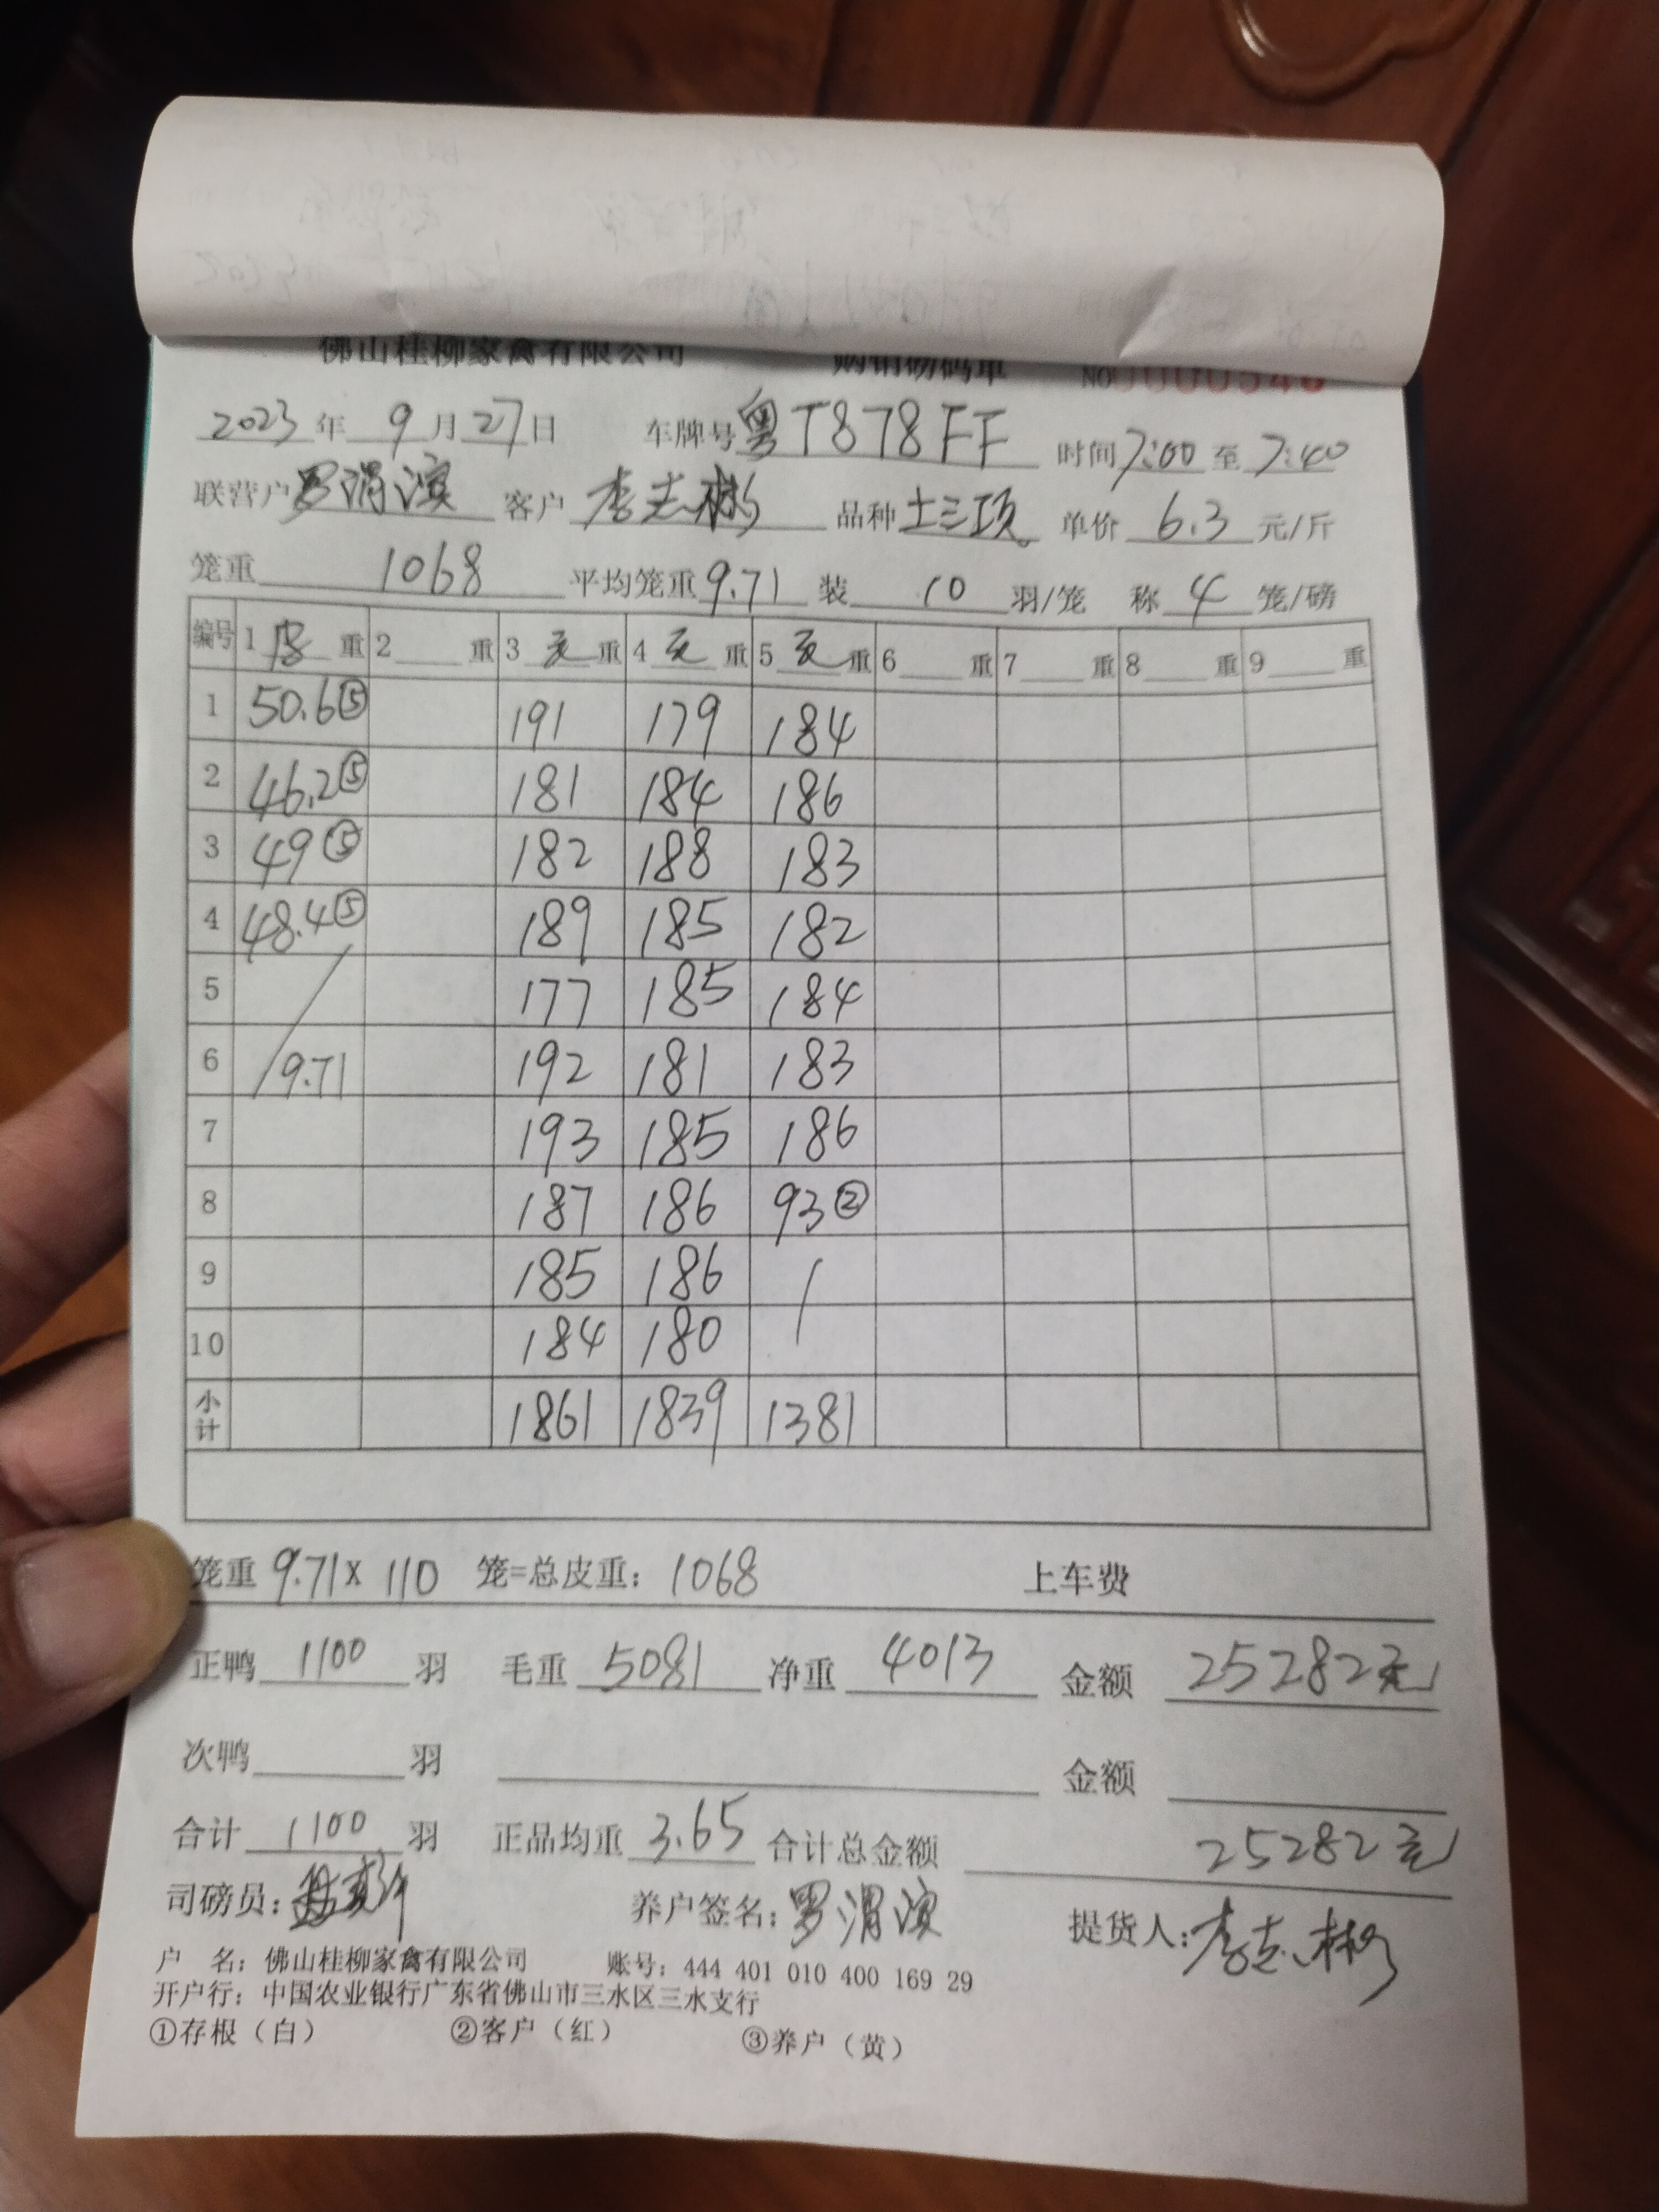 佛山桂柳家禽有限公司 购销磅码单 NO 0000546
2023年 9月 27日 车牌号 粤T878FF 时间 7:00 至 7:40
联营户 罗渭滨 客户 李志彬 品种 土三项 单价 6.3 元/斤
笼重 1068 平均笼重 9.71 装 10 羽/笼 称 4 笼/磅
编号 1 皮 重 2 重 3 毛 重 4 毛 重 5 毛 重 6 重 7 重 8 重 9 重
1 50.6⑤ 191 179 184
2 46.2⑤ 181 184 186
3 49⑤ 182 188 183
4 48.4⑤ 189 185 182
5 177 185 184
6 9.71 192 181 183
7 193 185 186
8 187 186 93②
9 185 186
10 184 180
小计 1861 1839 1381
笼重 9.71 X 110 笼=总皮重: 1068 上车费
正鸭 1100 羽 毛重 5081 净重 4013 金额 25282元
次鸭 羽 金额
合计 1100 羽 正品均重 3.65 合计总金额 25282元
司磅员: 养户签名: 罗渭滨 提货人: 李志彬
户 名: 佛山桂柳家禽有限公司 账号: 444 401 010 400 169 29
开户行: 中国农业银行广东省佛山市三水区三水支行
①存根（白） ②客户（红） ③养户（黄）